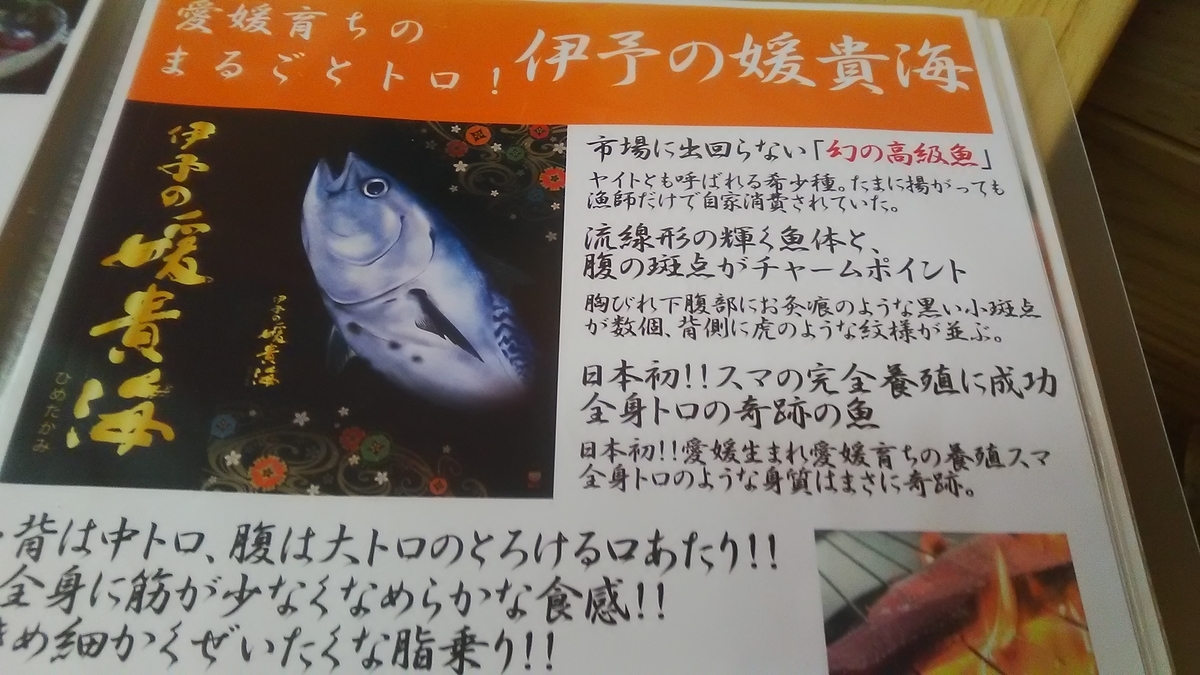 愛媛育ちの
まるごとトロ!
伊予の媛貴海
伊予の媛貴海
ひめたかみ
伊予の媛貴海
市場に出回らない「幻の高級魚」
ヤイトとも呼ばれる希少種。たまに揚がっても
漁師だけで自家消費されていた。
流線形の輝く魚体と、
腹の斑点がチャームポイント
胸びれ下腹部にお灸痕のような黒い小斑点
が数個、背側に虎のような紋様が並ぶ。
日本初!!スマの完全養殖に成功
全身トロの奇跡の魚
日本初!!愛媛生まれ愛媛育ちの養殖スマ
全身トロのような身質はまさに奇跡。
・背は中トロ、腹は大トロのとろける口あたり!!
全身に筋が少なくなめらかな食感!!
きめ細かくぜいたくな脂乗り!!